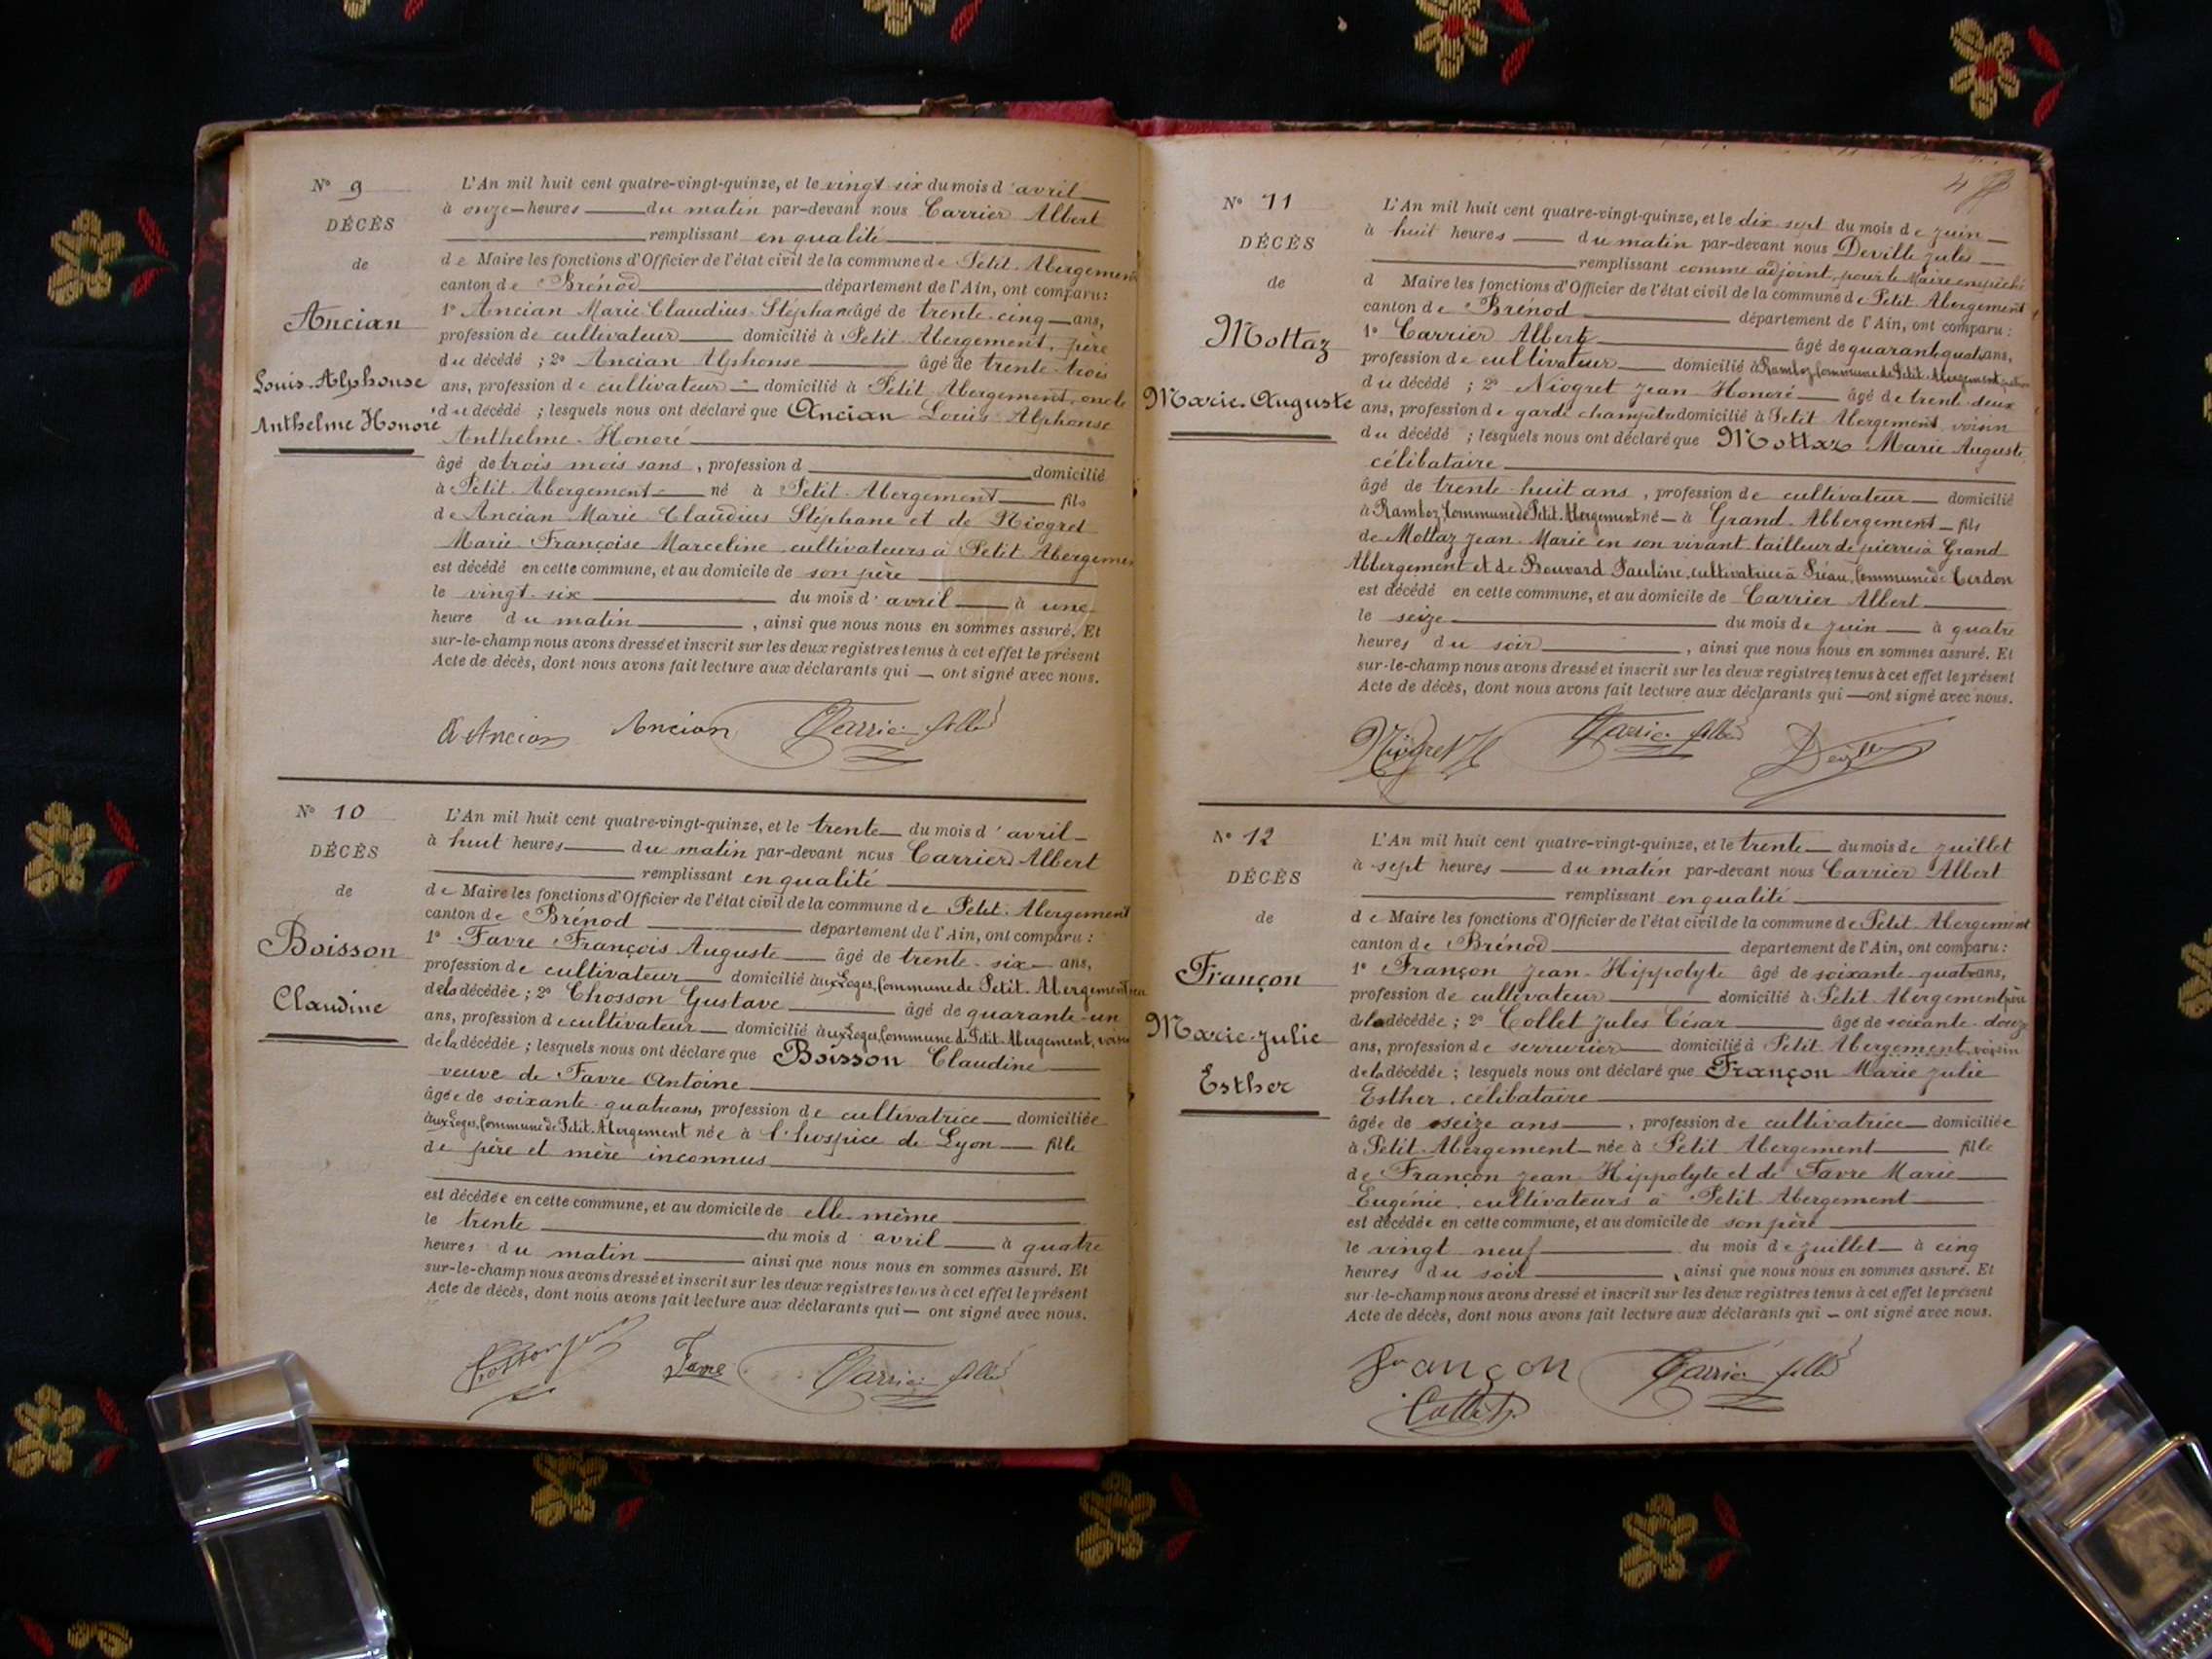 N° 9
DÉCÈS
de
Ancian
Louis-Alphonse
Anthelme Honoré
L'An mil huit cent quatre-vingt-quinze, et le vingt six du mois d'avril
à onze heures du matin par-devant nous Carrier Albert
remplissant en qualité
de Maire les fonctions d'Officier de l'état civil de la commune de Petit-Abergement
canton de Brénod département de l'Ain, ont comparu:
1° Ancian Marie Claudius Stéphane âgé de trente-cinq ans,
profession de cultivateur domicilié à Petit-Abergement, père
du décédé ; 2° Ancian Alphonse âgé de trente-trois
ans, profession de cultivateur domicilié à Petit Abergement, oncle
du décédé ; lesquels nous ont déclaré que Ancian Louis-Alphonse
Anthelme-Honoré
âgé de trois mois sans, profession d domicilié
à Petit-Abergement né à Petit-Abergement fils
de Ancian Marie Claudius Stéphane et de Niogret
Marie Françoise Marceline cultivateurs à Petit Abergement
est décédé en cette commune, et au domicile de son père
le vingt-six du mois d'avril à une
heure du matin, ainsi que nous nous en sommes assuré. Et
sur-le-champ nous avons dressé et inscrit sur les deux registres tenus à cet effet le présent
Acte de décès, dont nous avons fait lecture aux déclarants qui — ont signé avec nous.
A Ancian Ancian Carrier Albert
N° 10
DÉCÈS
de
Boisson
Claudine
L'An mil huit cent quatre-vingt-quinze, et le trente du mois d'avril
à huit heures du matin par-devant nous Carrier Albert
remplissant en qualité
de Maire les fonctions d'Officier de l'état civil de la commune de Petit-Abergement
canton de Brénod département de l'Ain, ont comparu :
1° Favre François Auguste âgé de trente-six ans,
profession de cultivateur domicilié aux Loges, Commune de Petit-Abergement
de la décédée ; 2° Chosson Gustave âgé de quarante-un
ans, profession de cultivateur domicilié aux Loges, Commune de Petit-Abergement, voisin
de la décédée ; lesquels nous ont déclaré que Boisson Claudine
veuve de Favre Antoine
âgée de soixante-quatre ans, profession de cultivatrice domiciliée
aux Loges, Commune de Petit-Abergement née à l'hospice de Lyon fille
de père et mère inconnus
est décédée en cette commune, et au domicile de elle-même
le trente du mois d'avril à quatre
heures du matin ainsi que nous nous en sommes assuré. Et
sur-le-champ nous avons dressé et inscrit sur les deux registres tenus à cet effet le présent
Acte de décès, dont nous avons fait lecture aux déclarants qui — ont signé avec nous.
Favre Carrier Albert
N° 11
DÉCÈS
de
Mottaz
Marie-Auguste
L'An mil huit cent quatre-vingt-quinze, et le dix sept du mois de juin
à huit heures du matin par-devant nous Deville Jules
remplissant comme adjoint, pour le Maire empêché
d Maire les fonctions d'Officier de l'état civil de la commune de Petit Abergement
canton de Brénod département de l'Ain, ont comparu :
1° Carrier Albert âgé de quarante quatre ans,
profession de cultivateur domicilié à Ramboz, Commune de Petit-Abergement, patron
du décédé ; 2° Niogret Jean Honoré âgé de trente-deux
ans, profession de garde champêtre domicilié à Petit Abergement, voisin
du décédé ; lesquels nous ont déclaré que Mottaz Marie Auguste,
célibataire
âgé de trente-huit ans, profession de cultivateur domicilié
à Ramboz, Commune de Petit-Abergement né à Grand-Abbergement fils
de Mottaz Jean-Marie en son vivant tailleur de pierres à Grand
Abbergement et de Bouvard Pauline, cultivatrice à Préau, Commune de Cerdon
est décédé en cette commune, et au domicile de Carrier Albert
le seize du mois de juin à quatre
heures du soir, ainsi que nous nous en sommes assuré. Et
sur-le-champ nous avons dressé et inscrit sur les deux registres tenus à cet effet le présent
Acte de décès, dont nous avons fait lecture aux déclarants qui — ont signé avec nous.
Niogret JH Carrier Albert Deville
N° 12
DÉCÈS
de
Françon
Marie-Julie
Esther
L'An mil huit cent quatre-vingt-quinze, et le trente du mois de juillet
à sept heures du matin par-devant nous Carrier Albert
remplissant en qualité
de Maire les fonctions d'Officier de l'état civil de la commune de Petit-Abergement
canton de Brénod département de l'Ain, ont comparu :
1° Françon Jean-Hippolyte âgé de soixante-quatre ans,
profession de cultivateur domicilié à Petit-Abergement, père
de la décédée ; 2° Collet Jules César âgé de soixante-douze
ans, profession de serrurier domicilié à Petit Abergement, voisin
de la décédée ; lesquels nous ont déclaré que Françon Marie Julie
Esther, célibataire
âgée de seize ans, profession de cultivatrice domiciliée
à Petit-Abergement née à Petit Abergement fille
de Françon Jean Hippolyte et de Favre Marie
Eugénie, cultivateurs à Petit Abergement
est décédée en cette commune, et au domicile de son père
le vingt neuf du mois de juillet à cinq
heures du soir, ainsi que nous nous en sommes assuré. Et
sur-le-champ nous avons dressé et inscrit sur les deux registres tenus à cet effet le présent
Acte de décès, dont nous avons fait lecture aux déclarants qui — ont signé avec nous.
Françon Carrier Albert
Collet